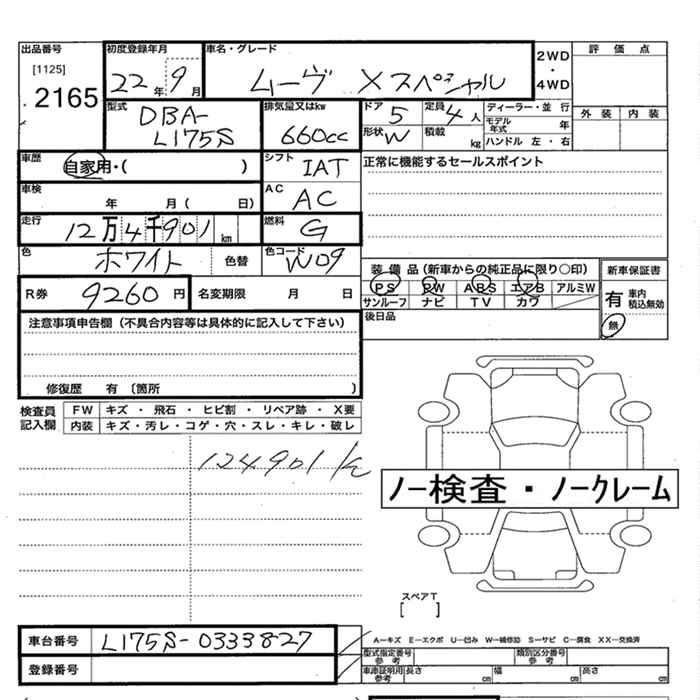 出品番号 初度登録年月 車名・グレード 2WD・4WD 評価点
[1125]
2165 22年 9月 ムーヴ Xスペシャル
型式 排気量又はkw ドア 定員 ディーラー・並行 外装 内装
DBA-L175S 660cc 5 4人 モデル年式 年
形状 W 積載 kg ハンドル 左・右
車歴 自家用・( ) シフト IAT 正常に機能するセールスポイント
車検 年 月( 日) AC AC
走行 12万4千901km 燃料 G
色 ホワイト 色替 色コード W09
装備品(新車からの純正品に限り○印) 新車保証書
R券 9260円 名変期限 月 日 PS PW ABS エアB アルミW 有 車内 積込無効
サンルーフ ナビ TV カワ 無
注意事項申告欄(不具合内容等は具体的に記入して下さい) 後日品
修復歴 有 〔箇所 )
検査員記入欄 FW キズ・飛石・ヒビ割・リペア跡・X要
内装 キズ・汚レ・コゲ・穴・スレ・キレ・破レ
124901k
ノー検査・ノークレーム
スペアT
[ ]
車台番号 L175S-0333827 A—キズ E—エクボ U—凹み W—補修跡 S—サビ C—腐食 XX—交換済
型式指定番号 参考 類別区分番号 参考
登録番号 車庫証明用 参考 長さ cm 幅 cm 高さ cm